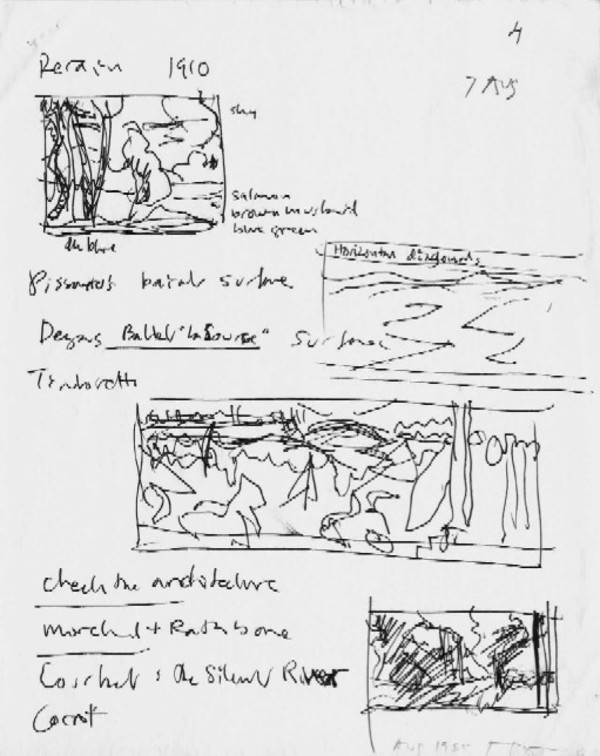 4
7 Aug
1910
sky
salmon
brown mustard
blue green
dk blue
Horizontal diagonals
Pissarro's surface
Degas Ballet "La Source" surface
Tintoretto
check the architecture
+ Rathbone
Courbet : the Silent River
Corot